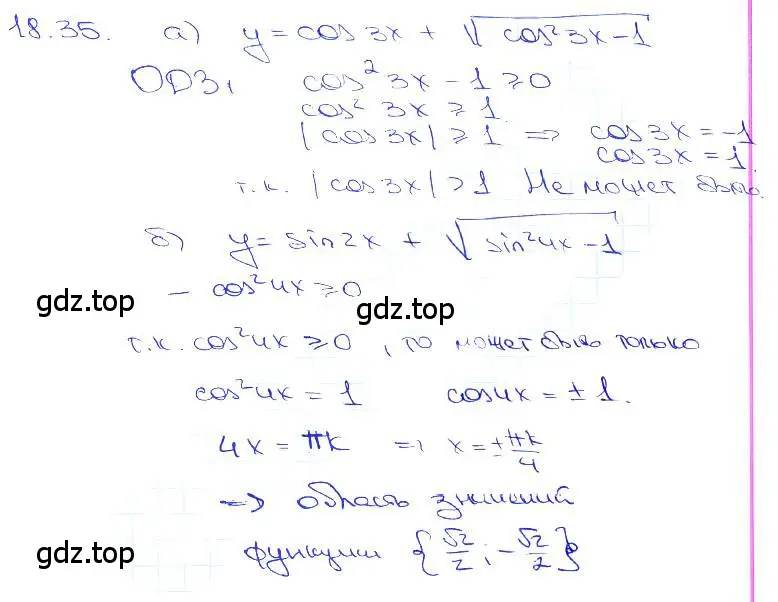 18.35. а) y = cos 3x + √cos²3x-1
ОДЗ, cos² 3x - 1 ≥ 0
cos² 3x ≥ 1
|cos 3x| ≥ 1 => cos 3x = -1
cos 3x = 1.
т.к. |cos 3x| > 1 Не может быть.
б) y = sin 2x + √sin²4x-1
- cos²4x ≥ 0
gdz.top
gdz.top
т.к. cos²4x ≥ 0, то может быть только
cos²4x = 1 cos 4x = ± 1.
4x = πk => x = ± πk/4
=> область значений
функции {√2/2; -√2/2}
gdz.top
gdz.top